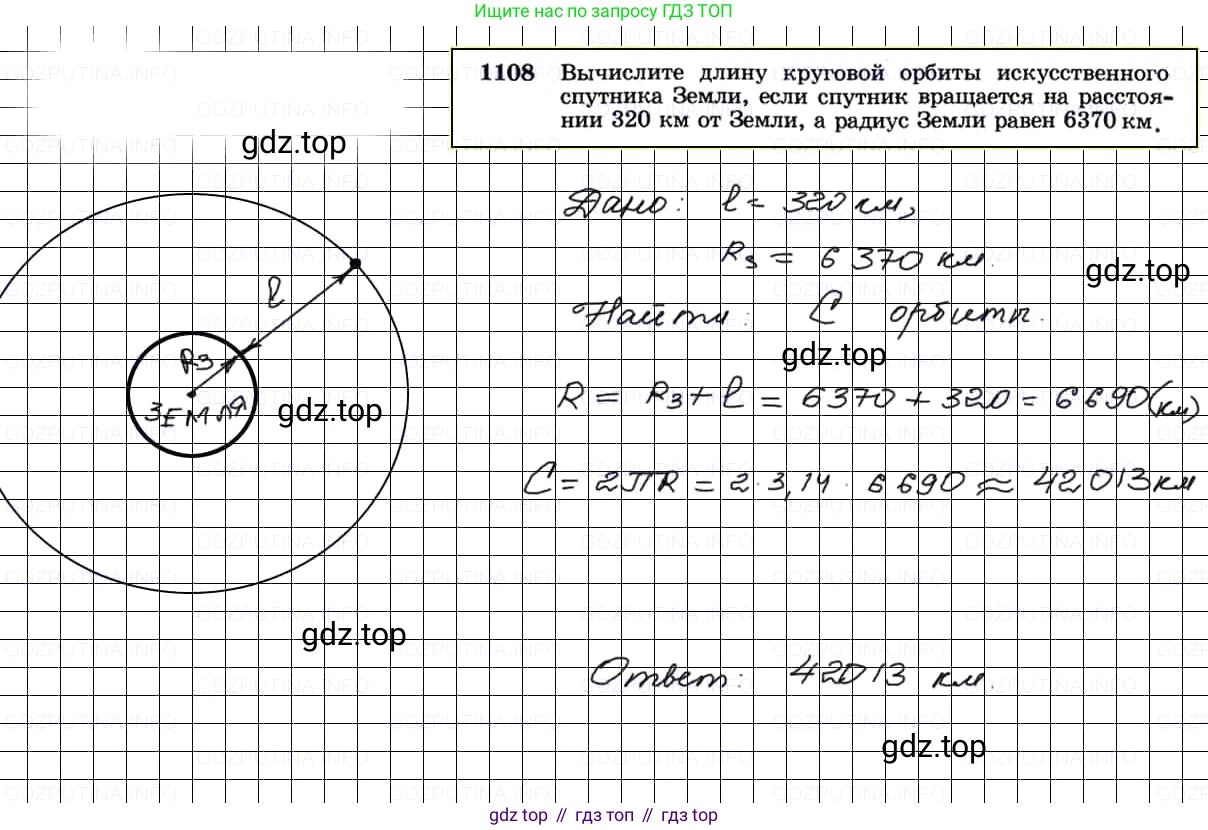 Ищите нас по запросу ГДЗ ТОП
1108 Вычислите длину круговой орбиты искусственного
спутника Земли, если спутник вращается на расстоя-
нии 320 км от Земли, а радиус Земли равен 6370 км.
gdz.top
Дано: l = 320 км,
Rз = 6 370 км.
gdz.top
Найти: C орбиты.
gdz.top
l
Rз
ЗЕМЛЯ
gdz.top
R = Rз + l = 6370 + 320 = 6690 (км)
C = 2πR = 2 · 3,14 · 6 690 ≈ 42 013 км
gdz.top
Ответ: 42013 км.
gdz.top
gdz top // гдз топ // гдз top
GDZPUTINA.INFO